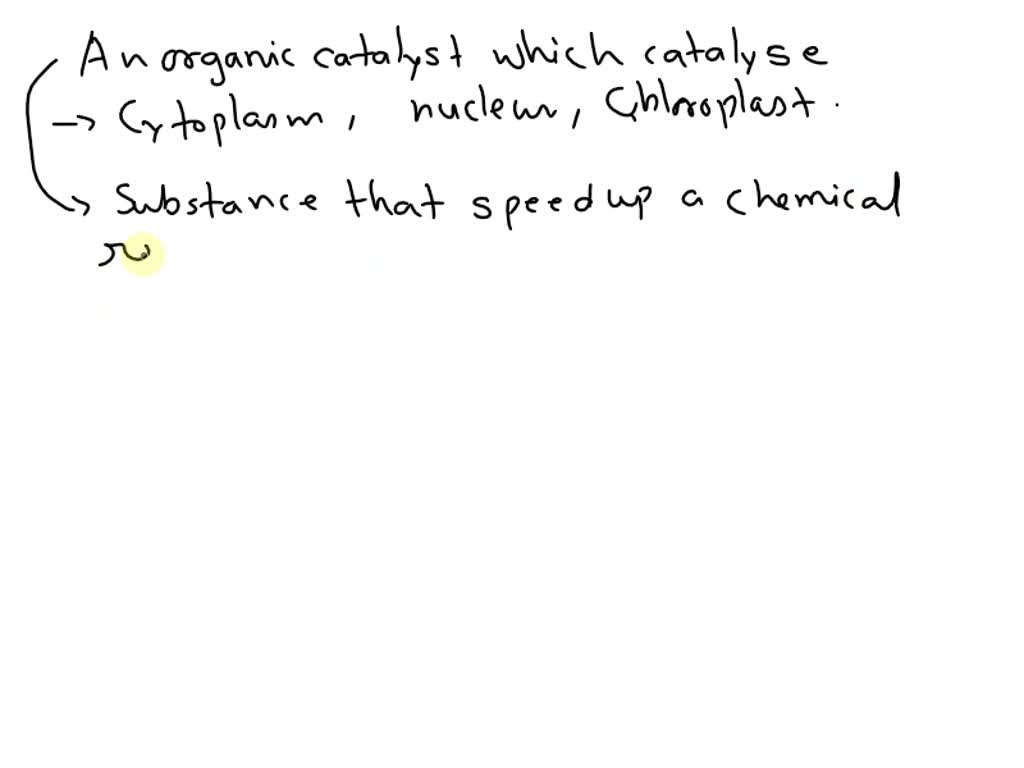 An organic catalyst which catalyse
→ Cytoplasm, nucleus, Chloroplast.
→ Substance that speed up a chemical